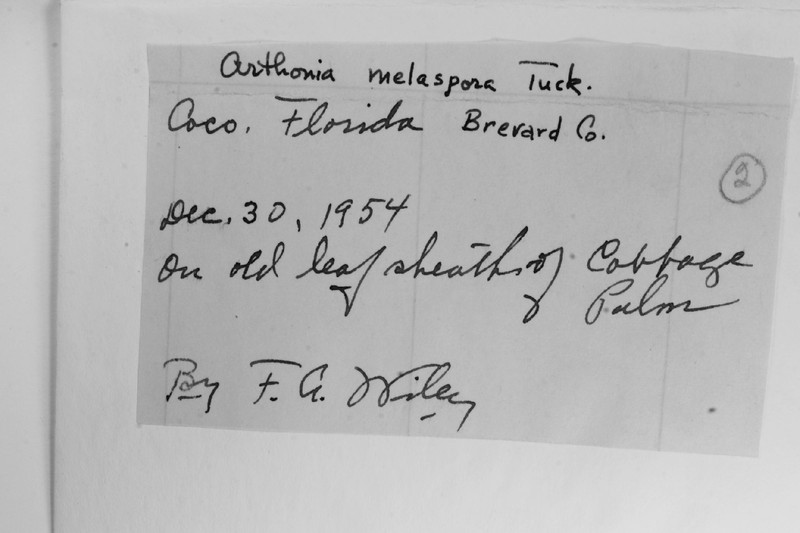 Arthonia melaspora Tuck.
Coco, Florida Brevard Co.
2
Dec. 30, 1954
On old leaf sheaths of Cabbage
Palm
By F. A. Wiley